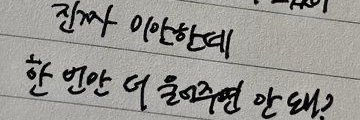 진짜 미안한데
한 번만 더 울어주면 안 돼?